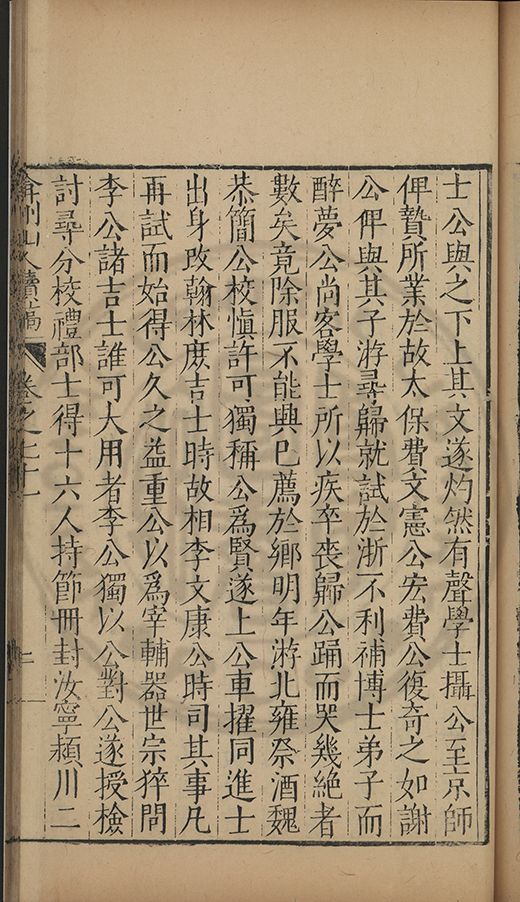 士公與之下上其文遂灼然有聲學士攝公至京師
俾贄所業於故太保費文憲公宏費公復奇之如謝
公俾與其子游尋歸就試於浙不利補博士弟子而
醉夢公尚客學士所以疾卒喪歸公踊而哭幾絕者
數矣竟除服不能興已薦於鄉明年游北雍祭酒魏
恭簡公校慎許可獨稱公爲賢遂上公車擢同進士
出身改翰林庶吉士時故相李文康公時司其事凡
再試而始得公久之益重公以爲宰輔器世宗猝問
李公諸吉士誰可大用者李公獨以公對公遂授檢
討尋分校禮部士得十六人持節冊封汝寧潁川二
弇州山人續稿 卷之七十一 二